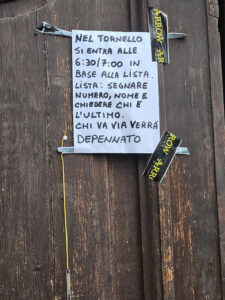 NEL TORNELLO
SI ENTRA ALLE
6:30/7:00 IN
BASE ALLA LISTA.
LISTA: SEGNARE
NUMERO, NOME E
CHIEDERE CHI È
L'ULTIMO.
CHI VA VIA VERRÁ
DEPENNATO
ARROW ARR
ROW ARRO